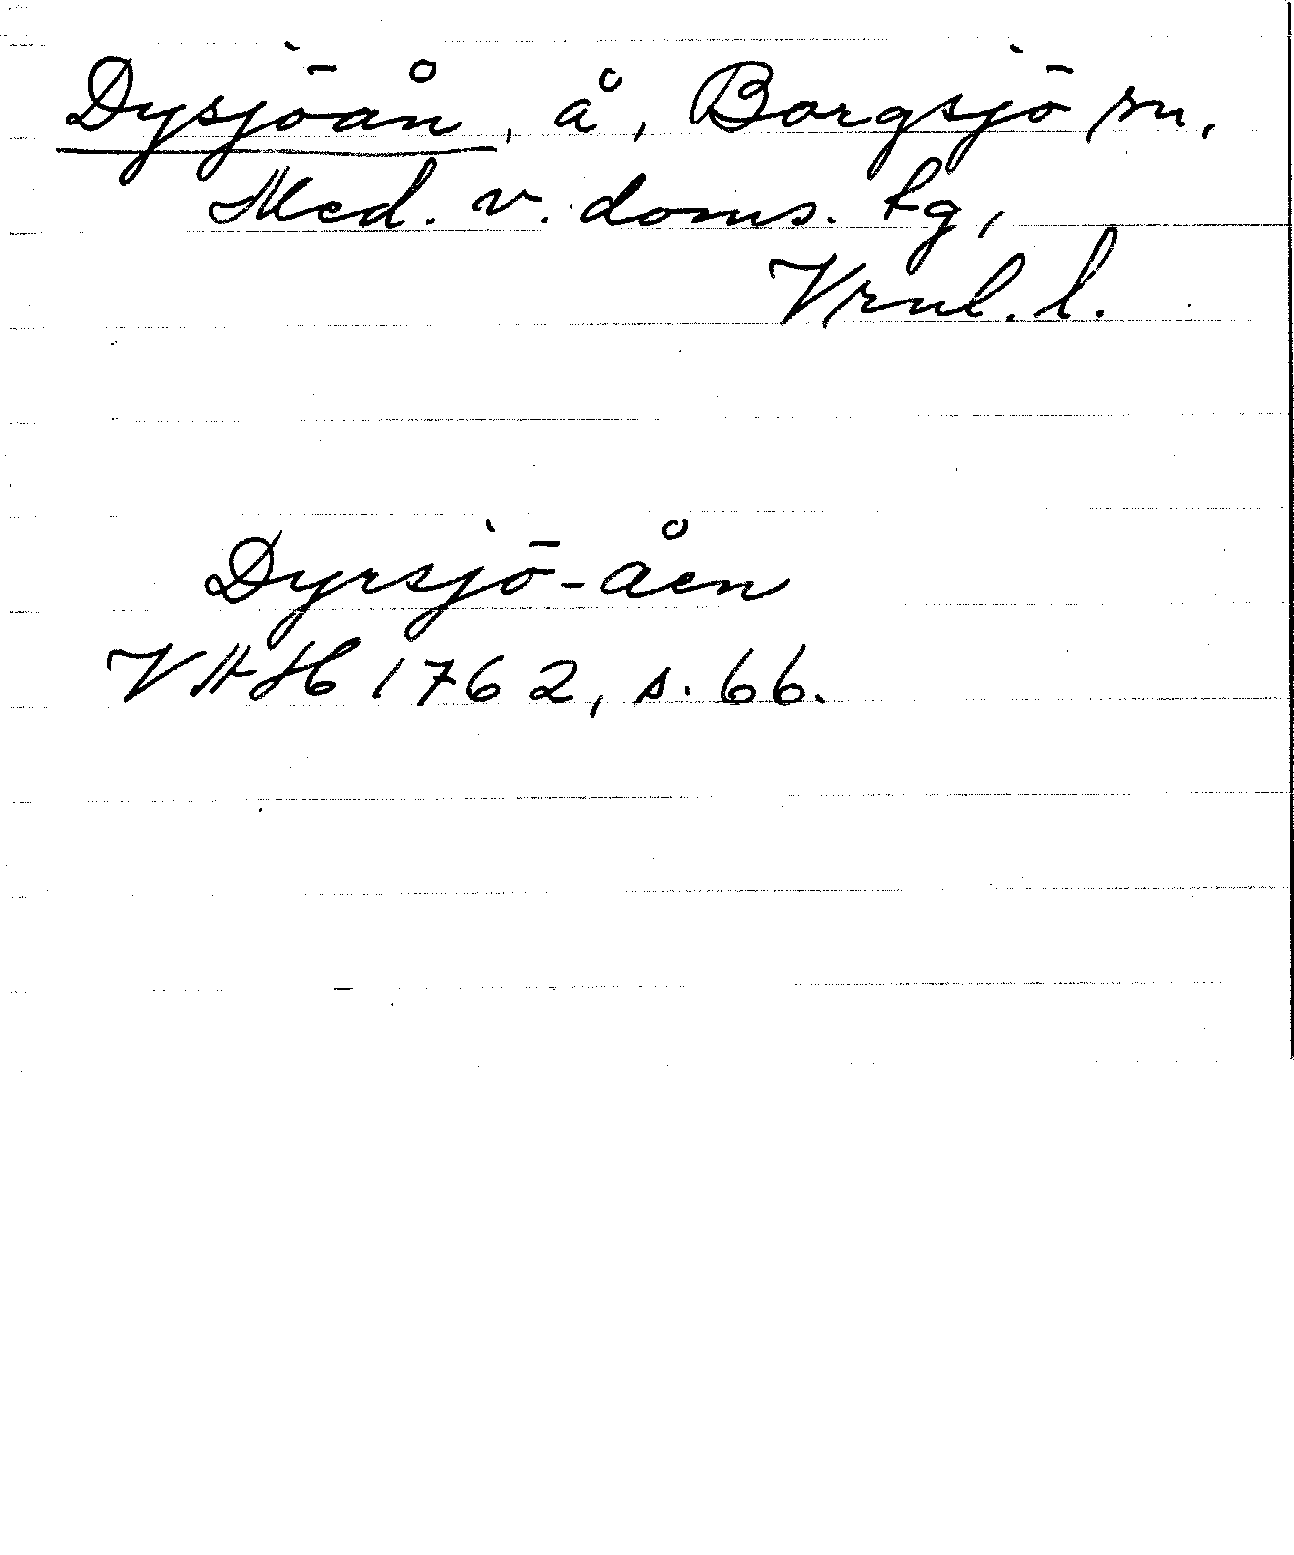 Dysjöån, å, Borgsjö sn,
Med. v. doms. tg,
Vrnl. l.
Dyrsjö-åen
VAH 1762, s. 66.